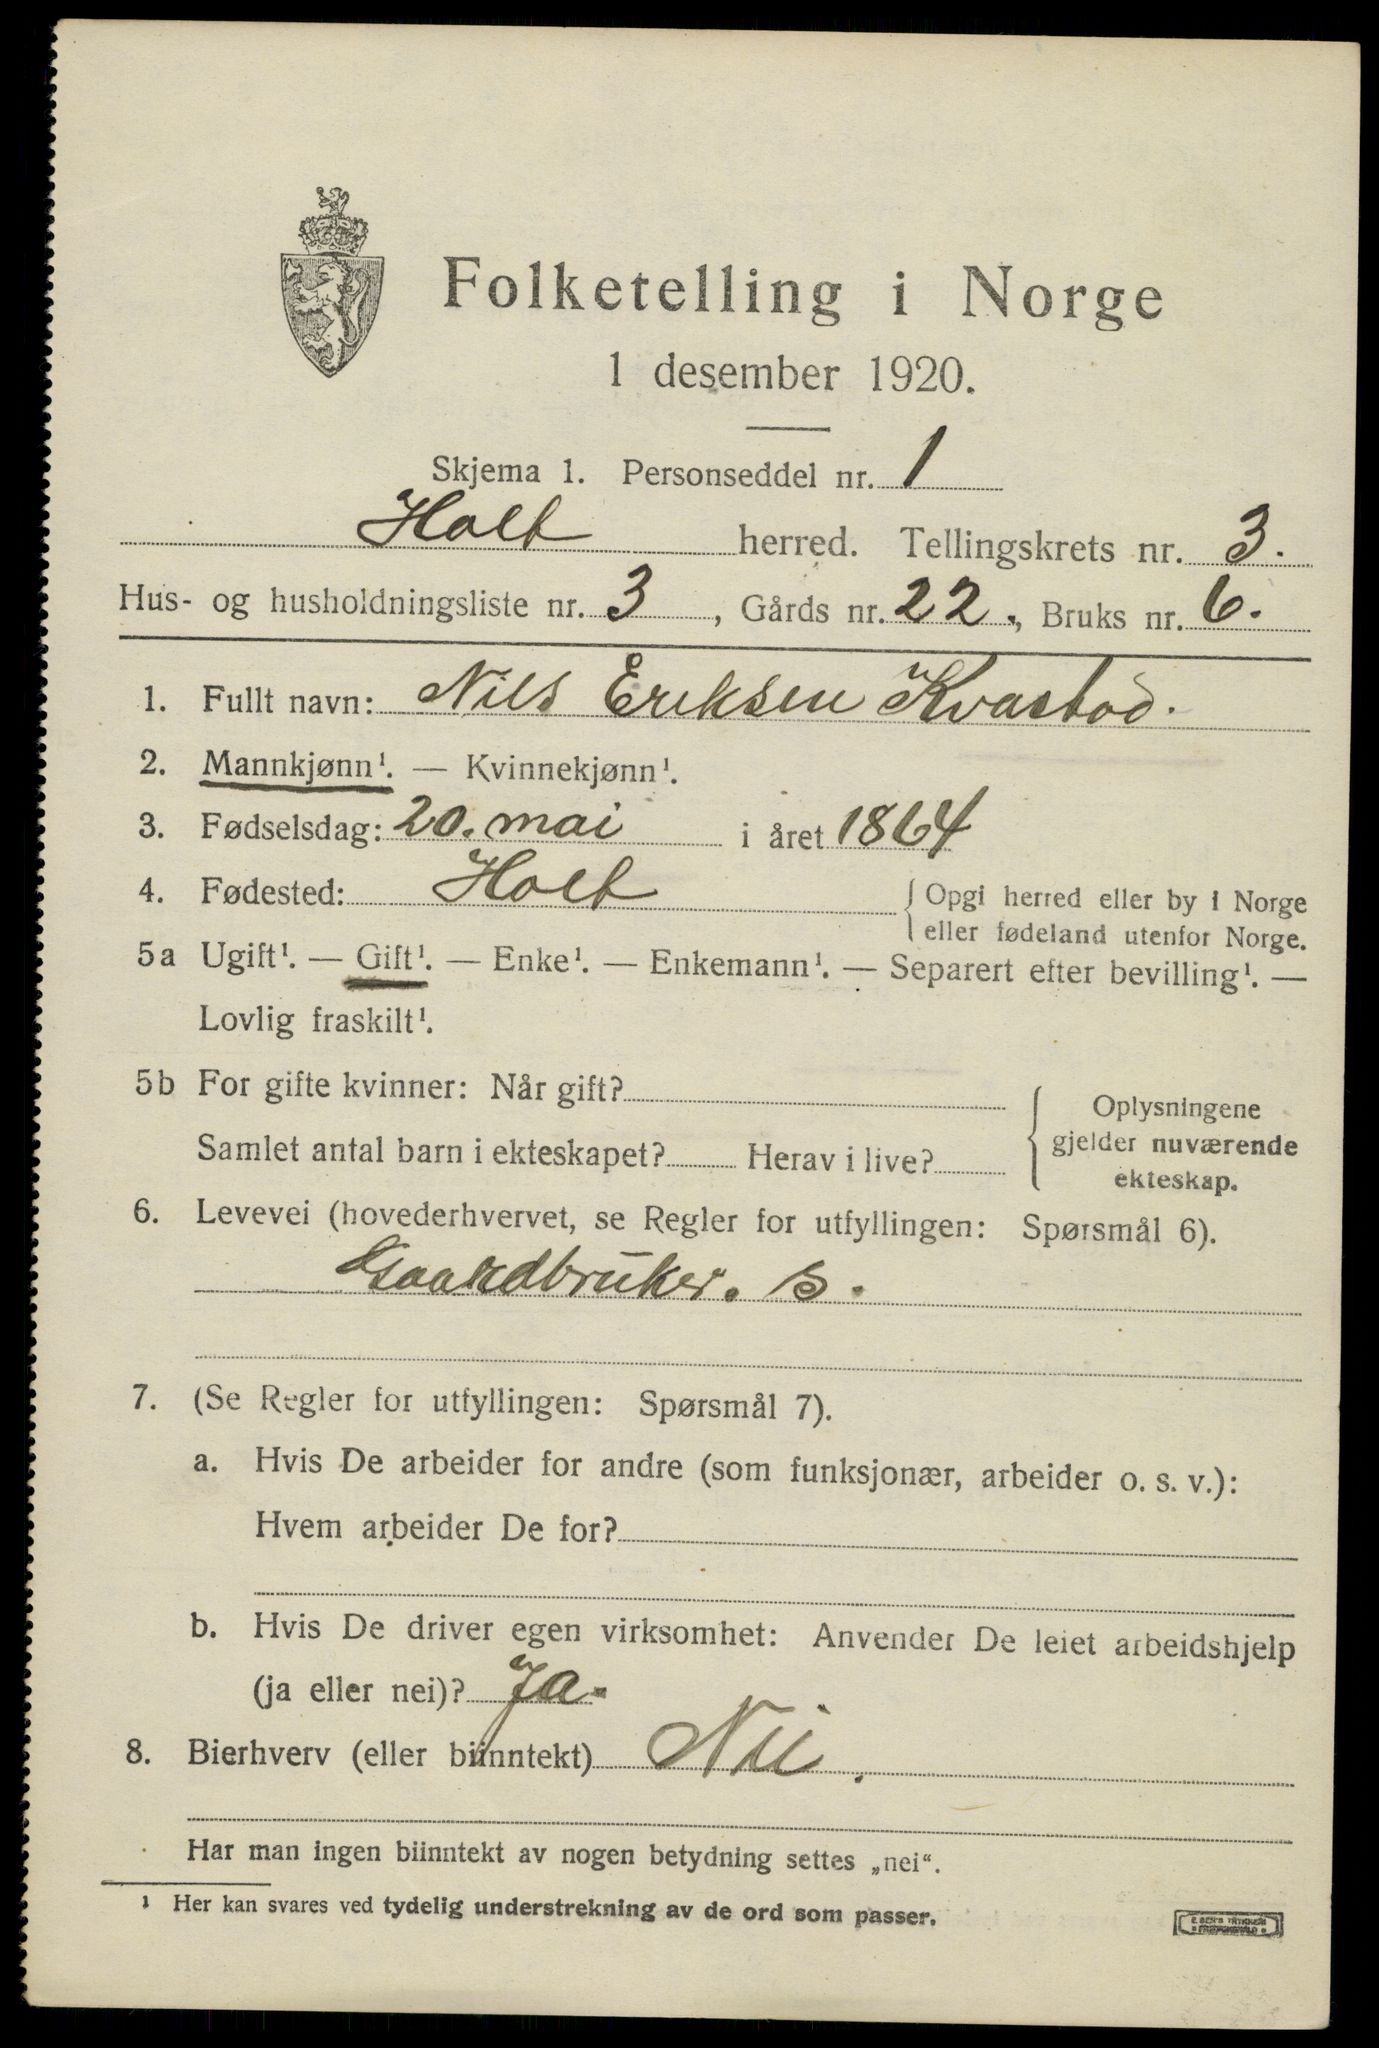 Folketelling i Norge
1 desember 1920.
Skjema 1. Personseddel nr. 1
Holt herred. Tellingskrets nr. 3.
Hus- og husholdningsliste nr. 3, Gårds nr. 22., Bruks nr. 6.
1. Fullt navn: Nils Eriksen Kvastad.
2. Mannkjønn¹. — Kvinnekjønn¹.
3. Fødselsdag: 20. mai i året 1864
4. Fødested: Holt { Opgi herred eller by i Norge
eller fødeland utenfor Norge.
5a Ugift¹. — Gift¹. — Enke¹. — Enkemann¹. — Separert efter bevilling¹. —
Lovlig fraskilt¹.
5b For gifte kvinner: Når gift?
Samlet antal barn i ekteskapet? Herav i live?
{ Oplysningene
gjelder nuværende
ekteskap.
6. Levevei (hovederhvervet, se Regler for utfyllingen: Spørsmål 6).
Gaardbruker. s.
7. (Se Regler for utfyllingen: Spørsmål 7).
a. Hvis De arbeider for andre (som funksjonær, arbeider o. s. v.):
Hvem arbeider De for?
b. Hvis De driver egen virksomhet: Anvender De leiet arbeidshjelp
(ja eller nei)? Ja.
8. Bierhverv (eller biinntekt) Nei.
Har man ingen biinntekt av nogen betydning settes „nei“.
¹ Her kan svares ved tydelig understrekning av de ord som passer.